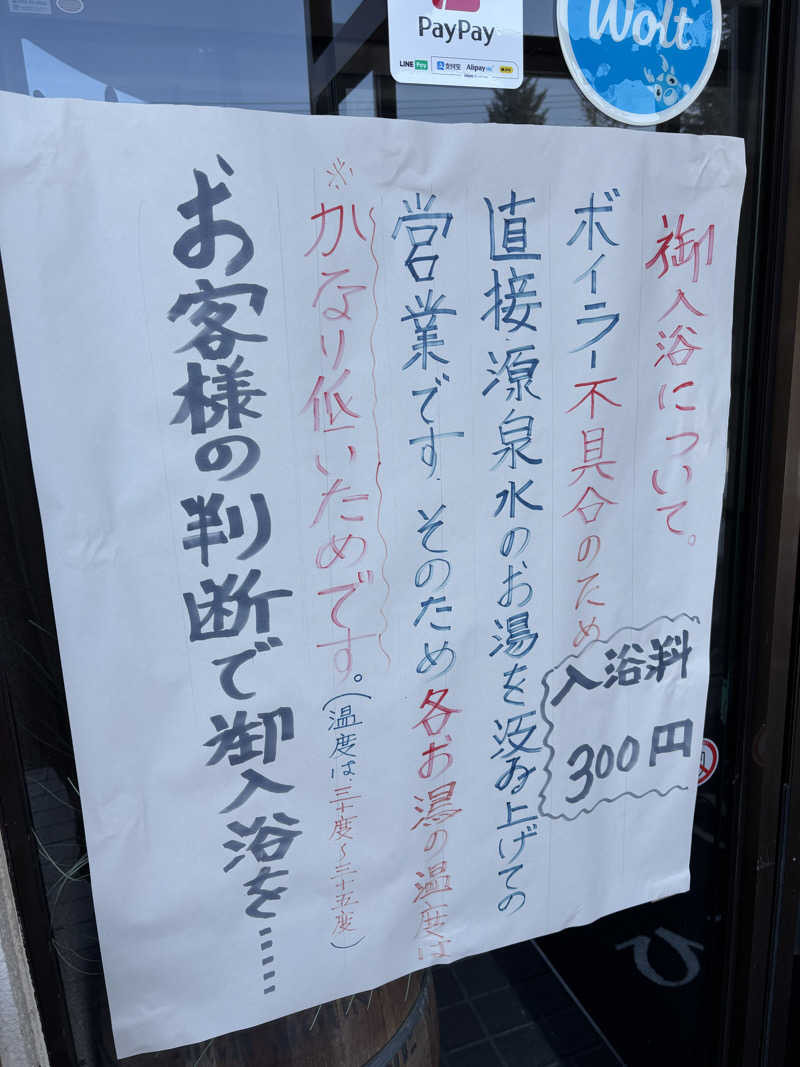 PayPay
LINE Pay 支付宝 Alipay
Wolt
御入浴について。
ボイラー不具合のため
直接源泉水のお湯を汲み上げての
営業です。そのため各お湯の温度は
※かなり低いためです。(温度は、三十度〜三十五度)
お客様の判断で御入浴を……
入浴料
300円